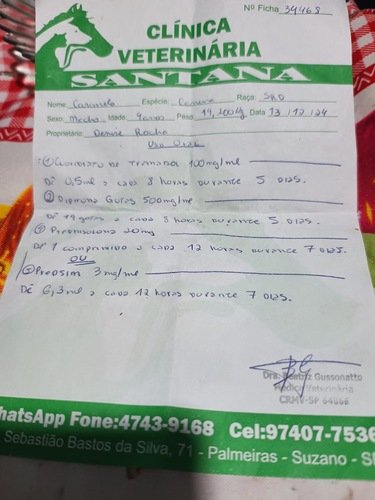 Nº Ficha 39468
CLÍNICA
VETERINÁRIA
SANTANA
Nome: Caramelo Espécie: Canina Raça: SRD
Sexo: Macho Idade: 9 anos Peso: 19,200kg Data 13/12/24
Proprietário: Denise Rocha
Uso Oral
① Cloridrato de Tramadol 100mg/ml
Dê 0,5ml a cada 8 horas durante 5 dias.
② Dipirona Gotas 500mg/ml
Dê 19 gotas a cada 8 horas durante 5 dias.
③ Prednisolona 20mg
Dê 1 comprimido a cada 12 horas durante 7 dias.
ou
③ Predsim 3mg/ml
Dê 6,3ml a cada 12 horas durante 7 dias.
Dra. Beatriz Gussonatto
Médica Veterinária
CRMV-SP
WhatsApp Fone:4743-9168 Cel:97407-7536
Sebastião Bastos da Silva, 71 - Palmeiras - Suzano - S